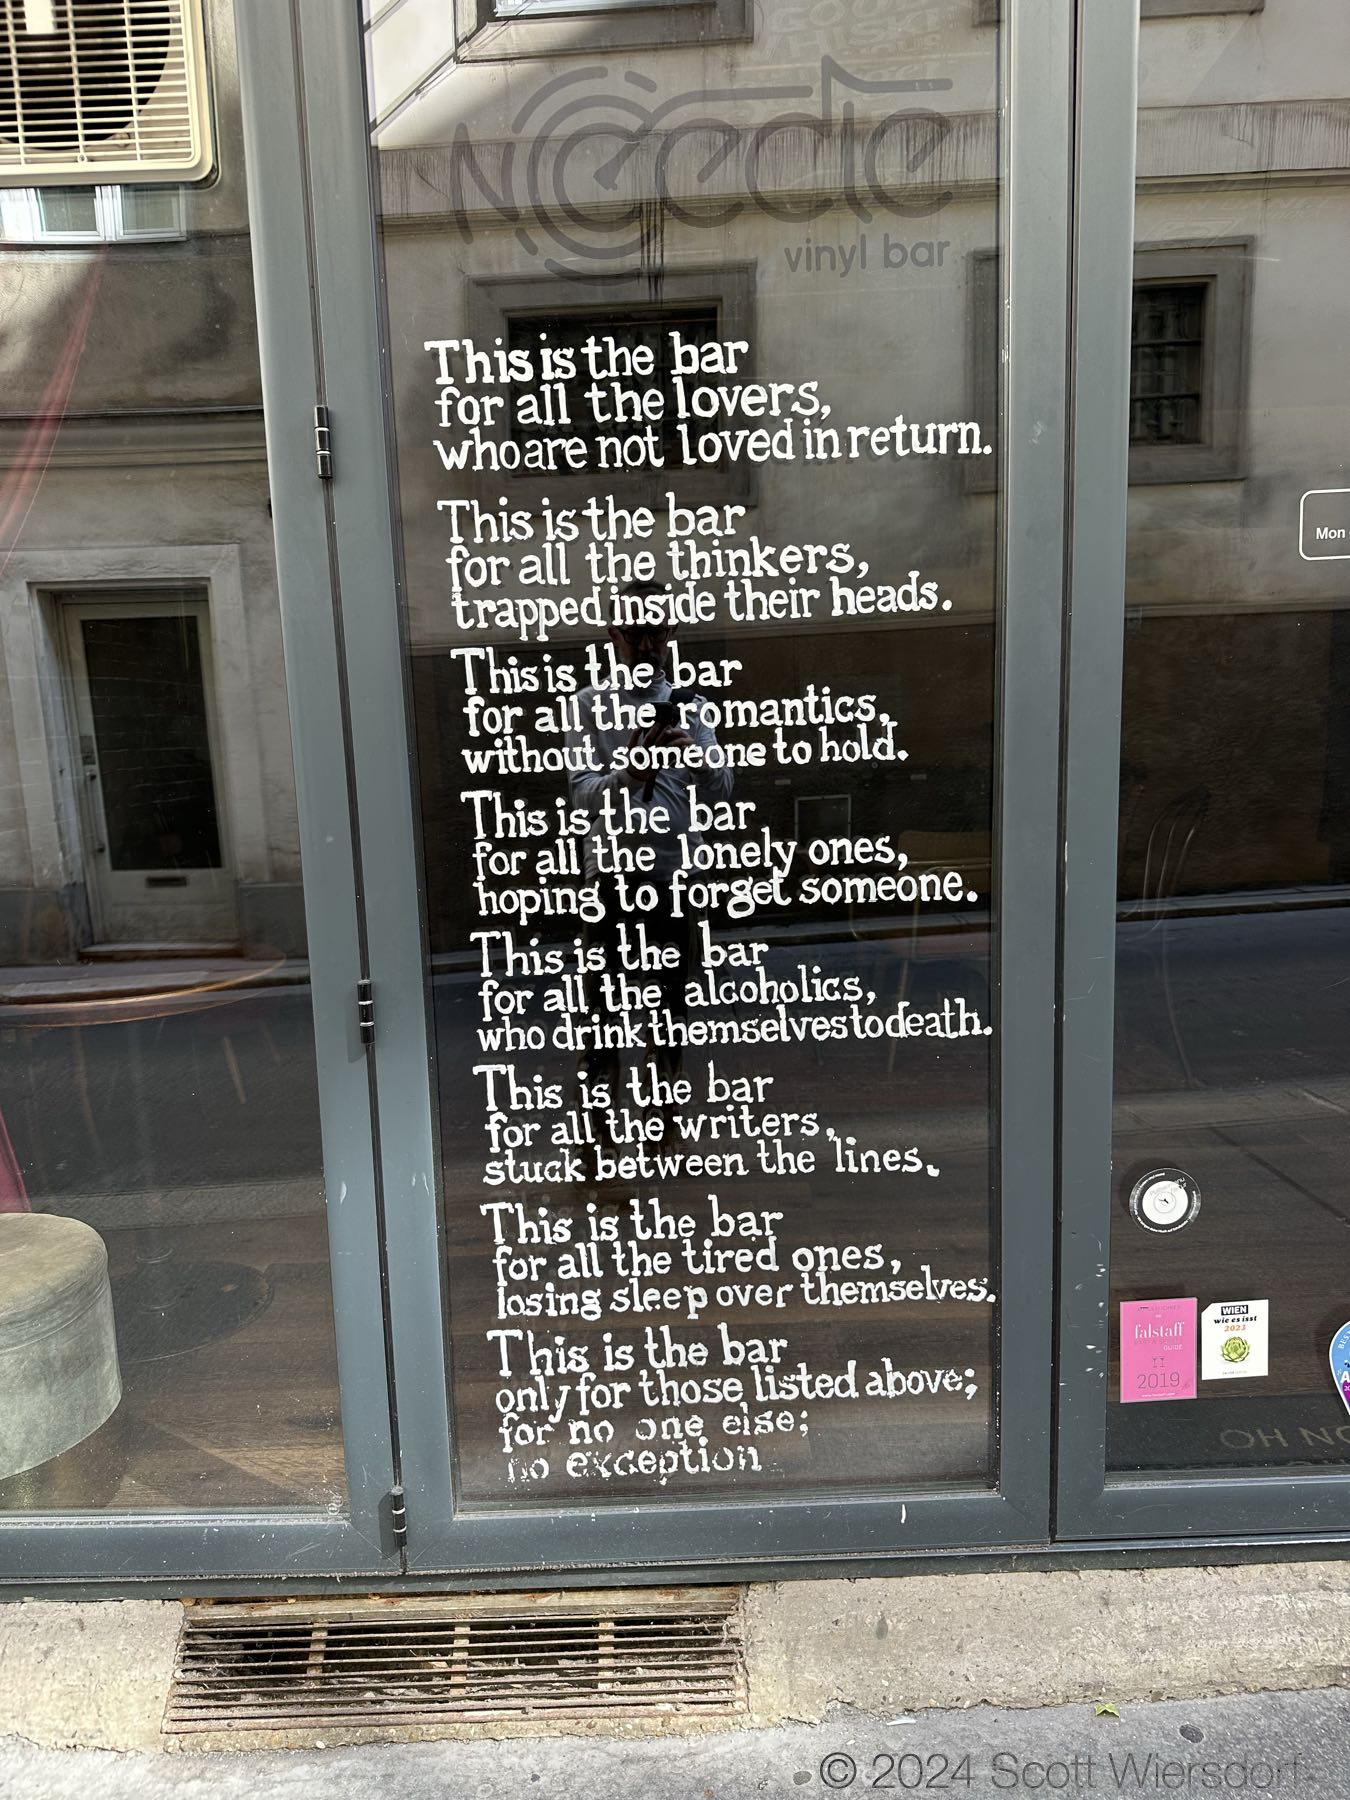 Needle
vinyl bar
This is the bar
for all the lovers,
who are not loved in return.
This is the bar
for all the thinkers,
trapped inside their heads.
This is the bar
for all the romantics,
without someone to hold.
This is the bar
for all the lonely ones,
hoping to forget someone.
This is the bar
for all the alcoholics,
who drink themselves to death.
This is the bar
for all the writers,
stuck between the lines.
This is the bar
for all the tired ones,
losing sleep over themselves.
This is the bar
only for those listed above;
for no one else;
no exception
Mon
falstaff
GUIDE
2019
WIEN
wie es isst
2023
OH NO
© 2024 Scott Wiersdorf